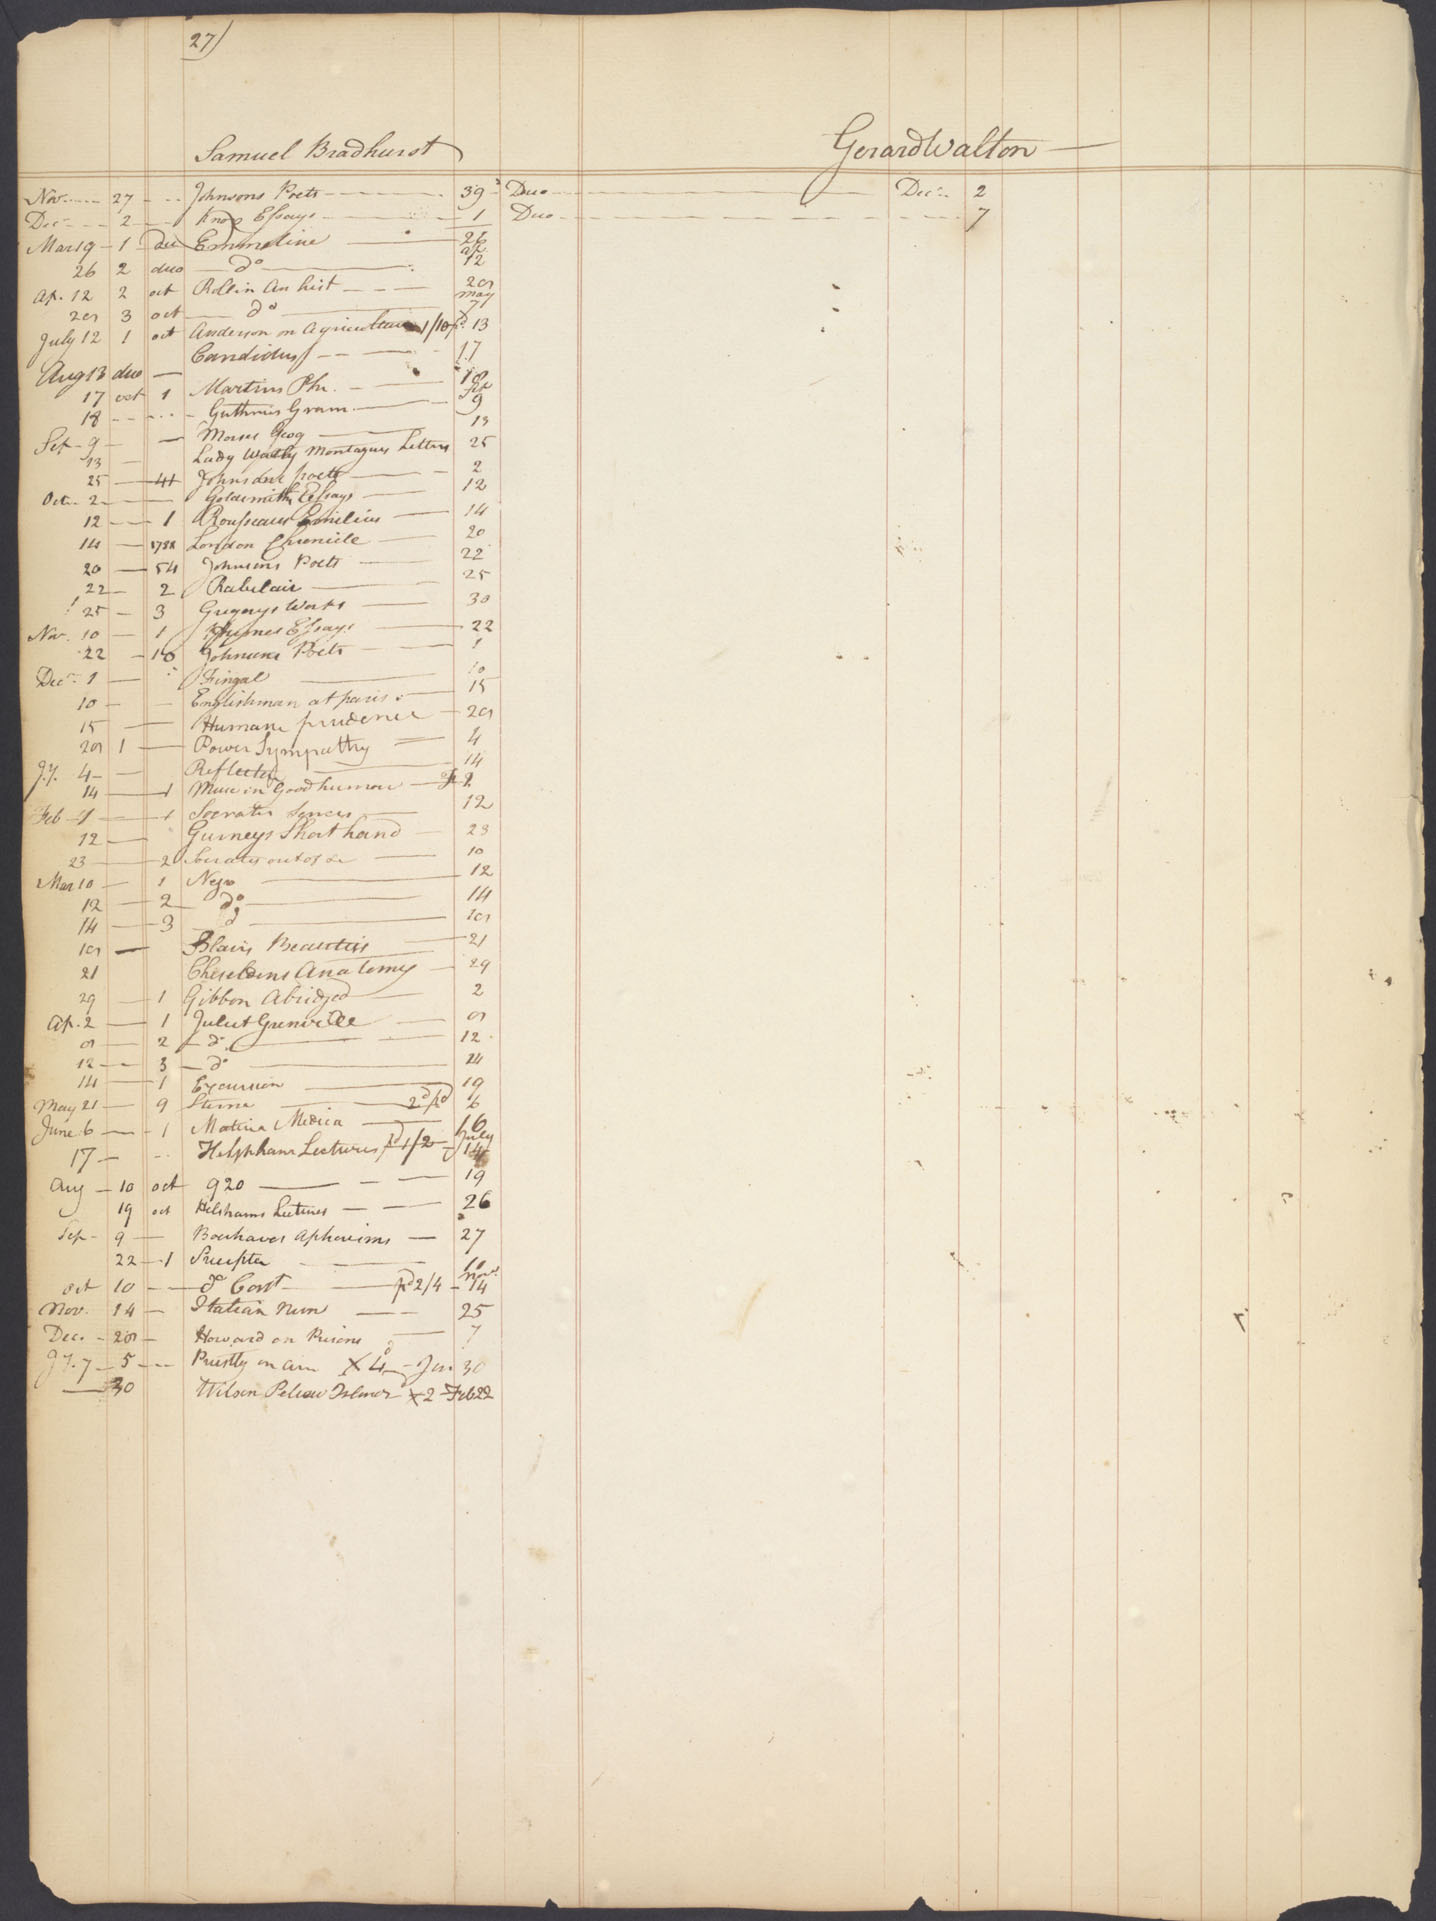 27)
Samuel Bradhurst
Nov. 27 Johnsons Poets 39 Duo
Dec 2 Knox Essays 1 Duo
Mar 19 1 duo Emmeline 26
26 2 duo do ap 12
Ap. 12 2 oct Rollin An hist 20
3 oct do may 7
July 12 1 oct Anderson on Agriculture 1/10 pd 13
Candidus 17
Aug 13 duo
17 oct 1 Martins Phi. 18
18 Guthries Gram Sep 9
Sep 9 Morses Geog 13
13 Lady Wortly Montagues Letters 25
25 41 Johnsons poets 2
Oct. 2 Goldsmiths Essays 12
12 1 Rousseaus Emilius 14
14 1788 London Chronicle 20
20 54 Johnsons Poets 22
22 2 Rabelais 25
25 3 Gregorys Works 30
Nov. 10 1 Humes Essays 22
22 18 Johnsons Poets 1
Decr. 1 Fingal 10
10 Englishman at paris 15
15 Human prudence 20
1 Power Sympathy 4
Jy. 4 Reflector 14
14 1 Muse in Good humour
Feb 1 Socrates 12
12 Gurneys Short hand 23
23 2 Socrates out of 10
Mar 10 1 Negro 12
12 2 do 14
14 3 d
Blairs Beauties 21
21 Cheseldens Anatomy 29
29 1 Gibbon Abridged 2
Ap. 2 1 Juliet Grenville
2 do 12
12 3 do 14
14 1 Excursion 19
May 21 9 Sterne 2d pd 6
June 6 1 Materia Medica 16
17 Helshams Lectures pd 1/2 July 14
Aug 10 oct 920 19
19 oct Helshams Lectures 26
Sep 9 Boerhaves Aphorisms 27
22 1 Precepter 10
Oct 10 do Cont pd 2/4 Novr 14
Nov. 14 Italian Nun 25
Dec. Howard on Prisons 7
Jy. 7 5 Priestly on air X 4d Jan 30
30 Wilson Pelew Islands X 2 Feb 22
Gerard Walton
Decr. 2
7